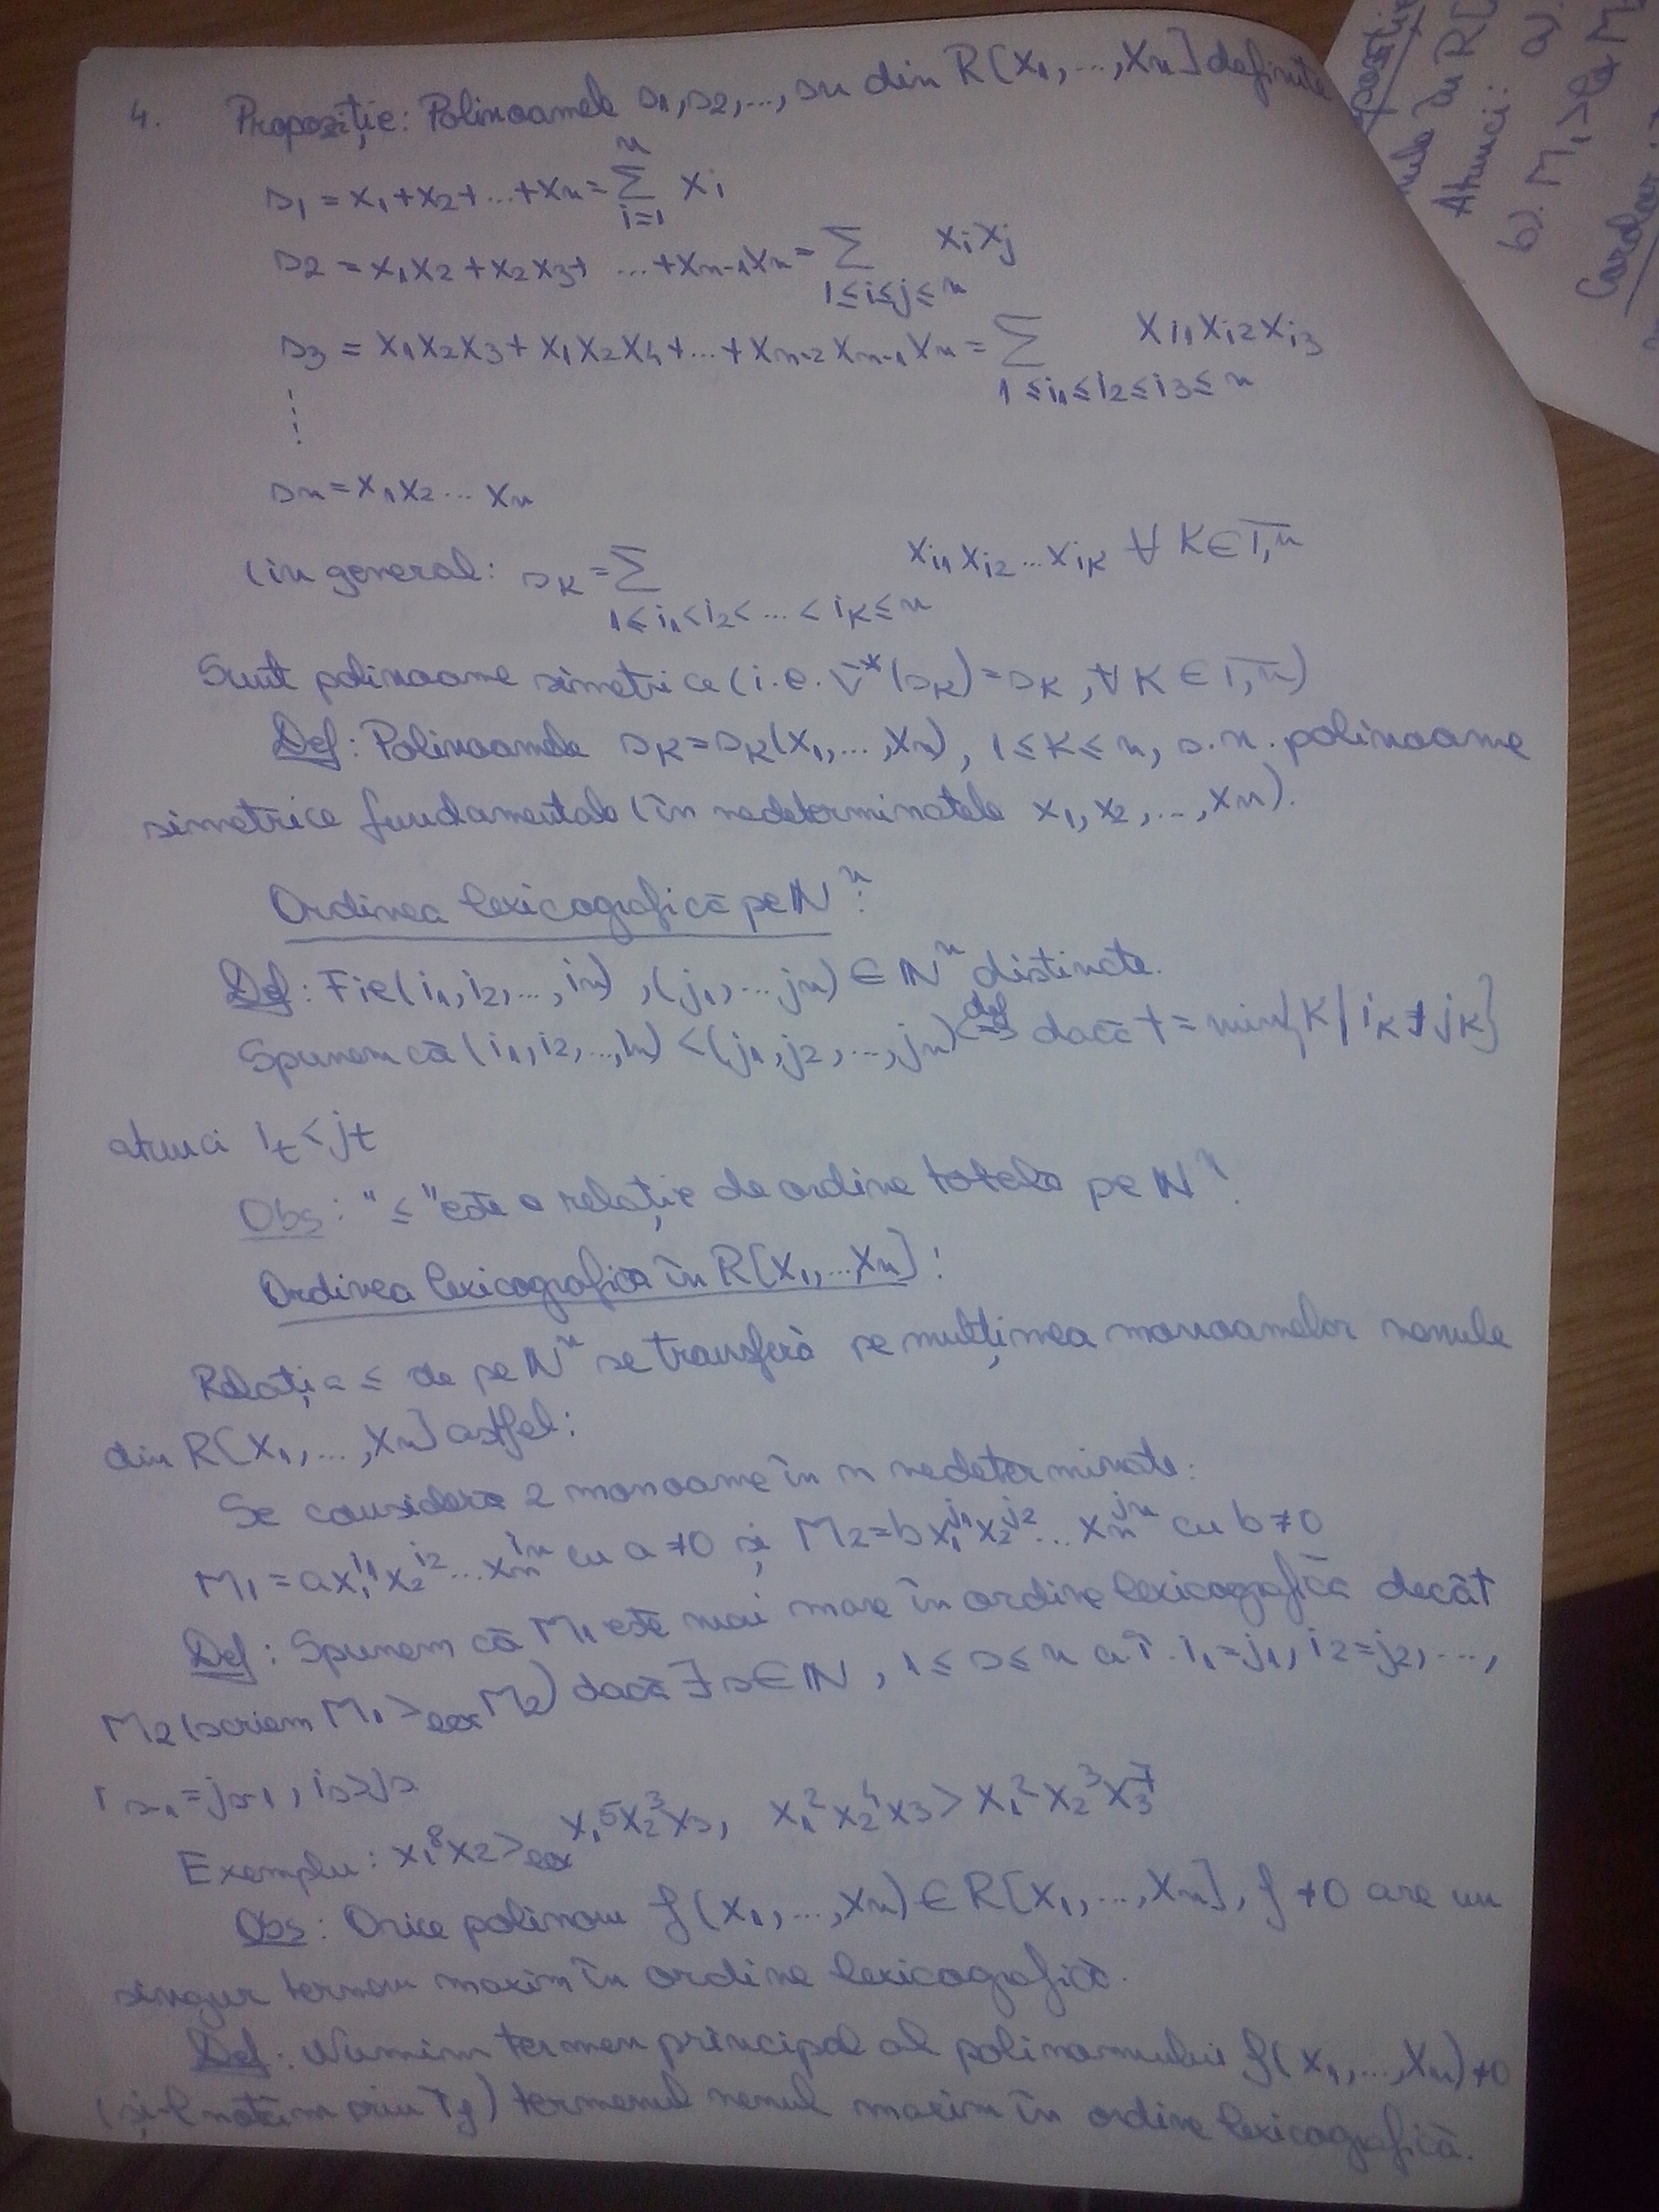 4. Propoziție: Polinoamele s1, s2, ..., sn din R[x1, ..., xn] definite
s1 = x1+x2+...+xn = ∑_{i=1}^{n} xi
s2 = x1x2 + x2x3 + ... + xn-1xn = ∑_{1≤i≤j≤n} xixj
s3 = x1x2x3 + x1x2x4 + ... + xn-2xn-1xn = ∑_{1≤i1≤i2≤i3≤n} xi1xi2xi3
⋮
sn = x1x2...xn
(în general: sk = ∑_{1≤i1<i2<...<ik≤n} xi1xi2...xik ∀ k∈1,n
Sunt polinoame simetrice (i.e. ∇*(sk) = sk, ∀ k ∈ 1,n)
Def: Polinoamele sk = sk(x1, ..., xn), 1≤k≤n, s.n. polinoame
simetrice fundamentale (în nedeterminatele x1, x2, ..., xn).
Ordinea lexicografică pe ℕ^n:
Def: Fie (i1, i2, ..., in), (j1, ... jn) ∈ ℕ^n distincte.
Spunem că (i1, i2, ..., in) < (j1, j2, ..., jn) <=>^{def} dacă t = min{k | ik ≠ jk}
atunci it < jt
Obs: "≤" este o relație de ordine totală pe ℕ^n.
Ordinea lexicografică în R[x1, ... xn]:
Relația ≤ de pe ℕ^n se transferă pe mulțimea monoamelor nenule
din R[x1, ..., xn] astfel:
Se consideră 2 monoame în n nedeterminate:
M1 = ax1^{i1}x2^{i2}...xn^{in} cu a≠0 și M2 = bx1^{j1}x2^{j2}...xn^{jn} cu b≠0
Def: Spunem că M1 este mai mare în ordine lexicografică decât
M2 (scriem M1 >lex M2) dacă ∃ s∈ℕ, 1≤s≤n a.î. i1=j1, i2=j2, ...,
is-1=js-1, is>js
Exemplu: x1^8x2 >lex x1^5x2^3x3, x1^2x2^4x3 > x1^2x2^3x3^7
Obs: Orice polinom f(x1, ..., xn) ∈ R[x1, ..., xn], f≠0 are un
singur termen maxim în ordine lexicografică.
Def: Numim termen principal al polinomului f(x1, ..., xn)≠0
(și-l notăm prin Tf) termenul nenul maxim în ordine lexicografică.
Atunci: a).
b). M1 >